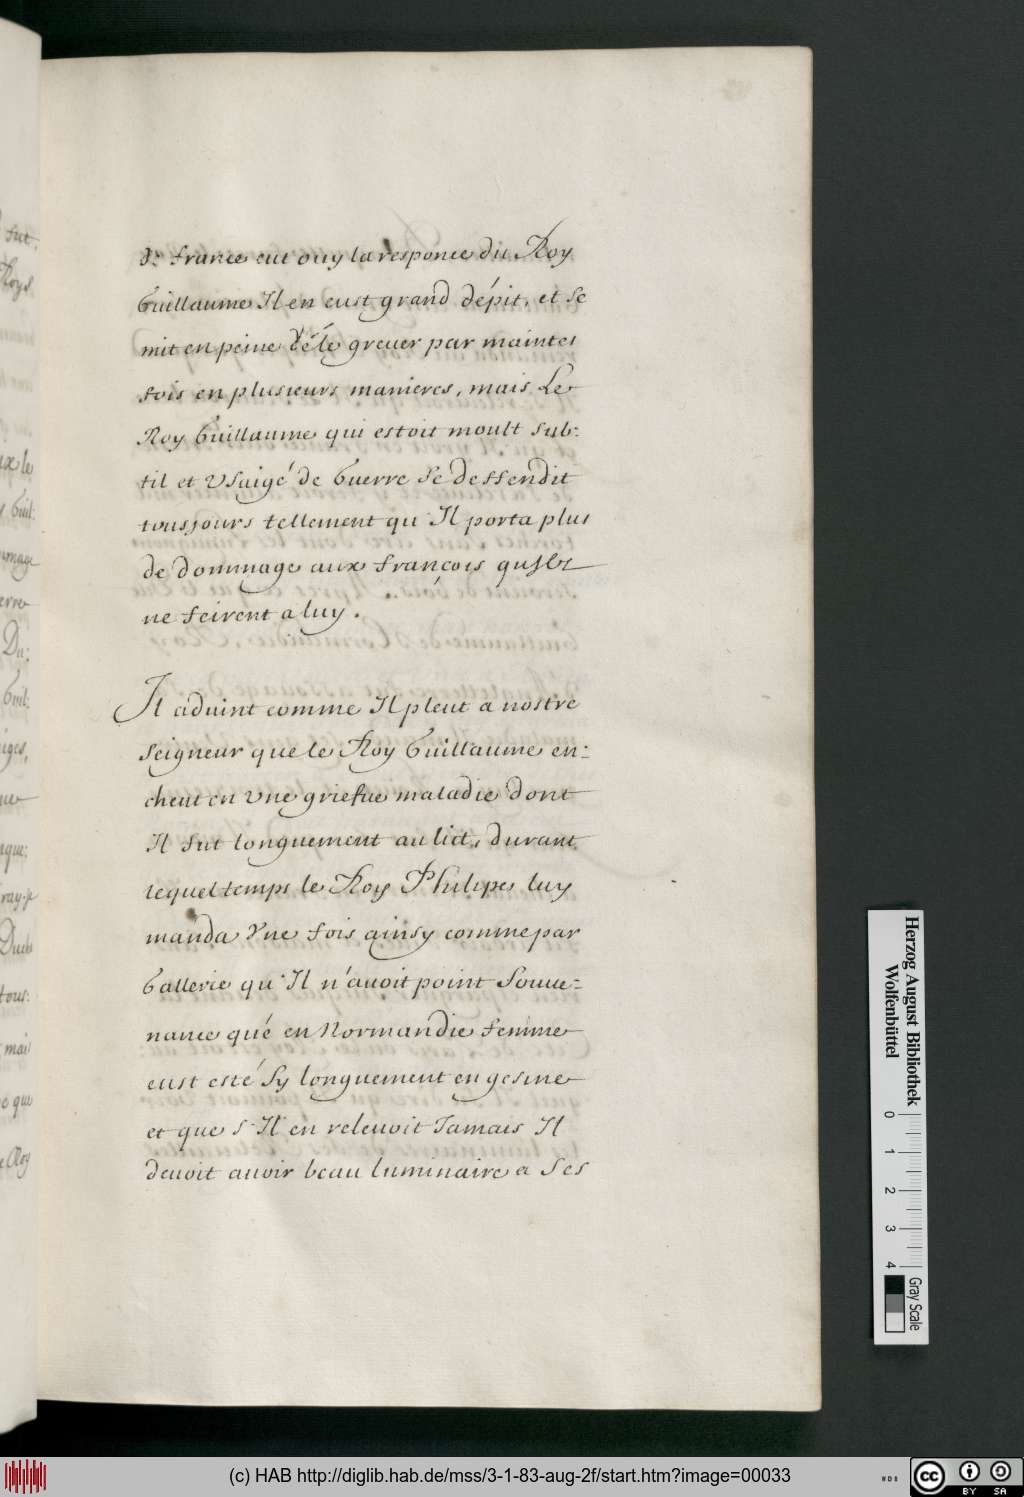 de France eut ouy la responce du Roy
Guillaume Il en eust grand dépit, et se
mit en peine dé le greuer par maintes
fois en plusieurs manieres, mais Le
Roy Guillaume qui estoit moult sub:
til et Vsaigé de Guerre se deffendit
tousjours tellement qu'Il porta plus
de dommage aux françois qu'Ilz
ne feirent a luy.
Il aduint comme Il pleut a nostre
seigneur que le Roy Guillaume en:
cheut en Vne griefue maladie dont
Il fut longuement au lict, durant
lequel temps le Roy Philipes luy
manda Vne fois ainsy comme par
Gallerie qu'Il n'auoit point Souue:
nance qué en Normandie femme
eust esté Sy longuement en gesine
et que s'Il en releuoit Jamais Il
deuoit auoir beau luminaire a Ses
fut.
Roys
ux le
y Guil:
mmage
erre
Du:
Guil:
iges,
ue
nque:
ray-je
Duch
tous:
mais
e que
e Roy
Herzog August Bibliothek
Wolfenbüttel
0 1 2 3 4
Gray Scale
(c) HAB http://diglib.hab.de/mss/3-1-83-aug-2f/start.htm?image=00033
WDB
cc BY SA